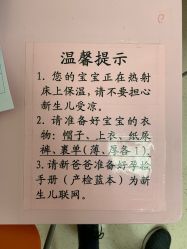 温馨提示
1. 您的宝宝正在热射
床上保温，请不要担心
新生儿受凉。
2. 请准备好宝宝的衣
物：帽子、上衣、纸尿
裤、裹单（薄、厚各1）。
3. 请新爸爸准备好孕检
手册（产检蓝本）为新
生儿联网。